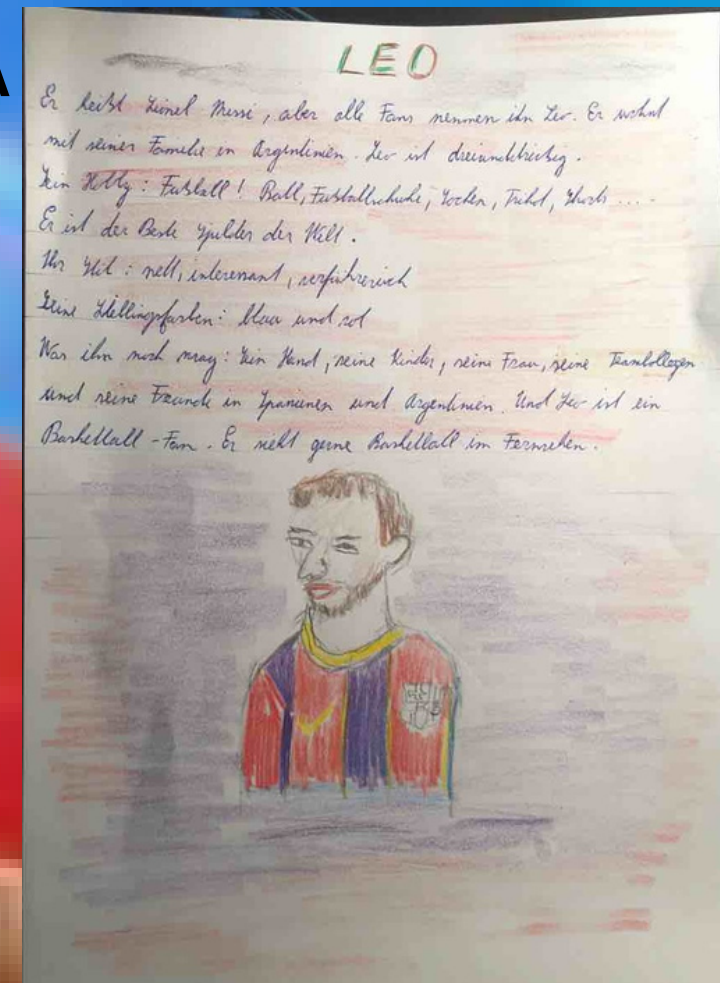 LEO
Er heißt Lionel Messi, aber alle Fans nennen ihn Leo. Er wohnt
mit seiner Familie in Argentinien. Leo ist dreiunddreißig.
Sein Hobby: Fußball! Ball, Fußballschuhe, Socken, Trikot, Shorts ....
Er ist der Beste Spieler der Welt.
Ihr Stil: nett, interessant,
Seine Lieblingsfarben: blau und rot
Was ihn noch mag: Sein Hund, seine Kinder, seine Frau, seine Teamkollegen
und seine Freunde in Spanienen und Argentinien. Und Leo ist ein
Basketball-Fan. Er sieht gerne Basketball im Fernsehen.